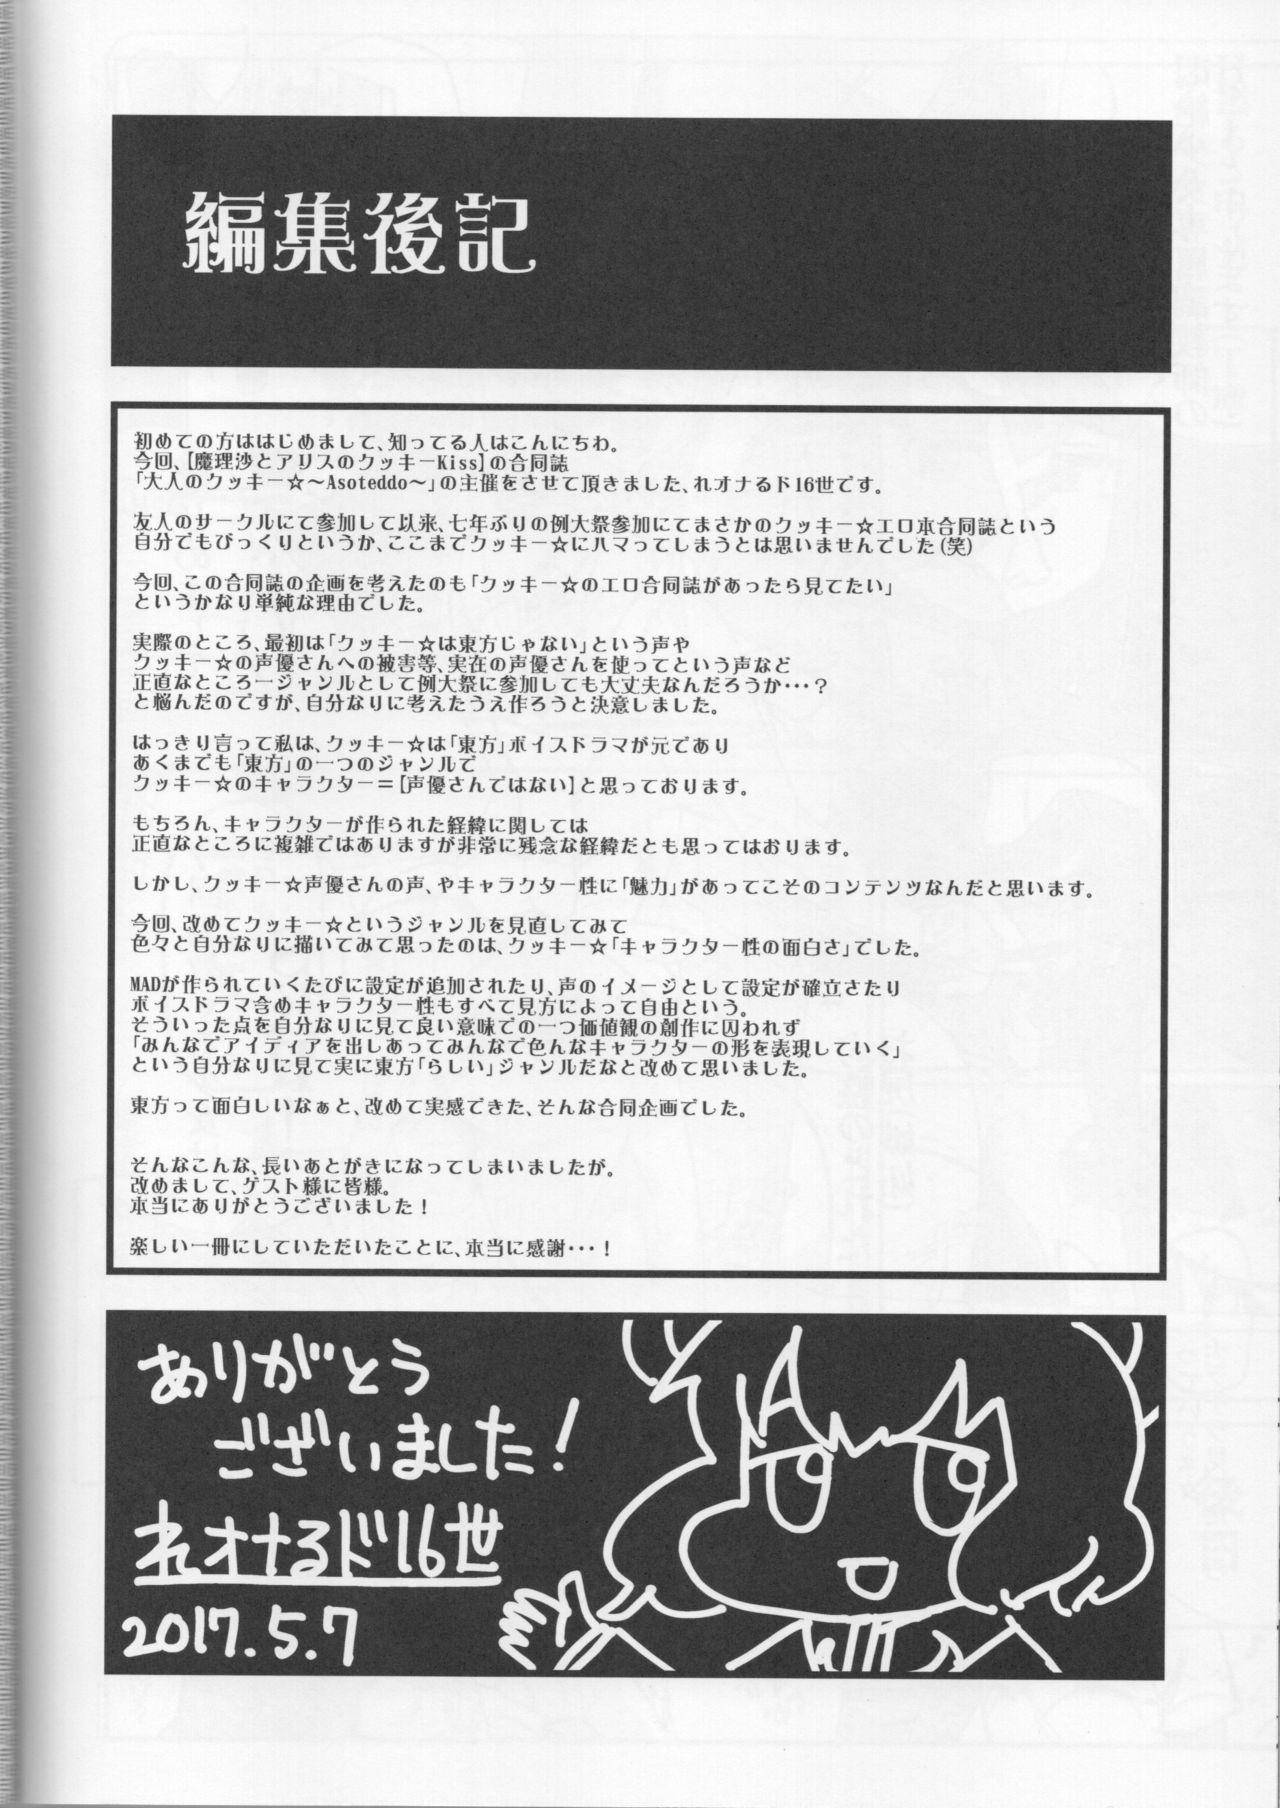 編集後記
初めての方ははじめまして、知ってる人はこんにちわ。
今回、[魔理沙とアリスのクッキーKiss]の合同誌
「大人のクッキー☆～Asoteddo～」の主催をさせて頂きました、れオナるド16世です。
友人のサークルにて参加して以来、七年ぶりの例大祭参加にてまさかのクッキー☆エロ本合同誌という
自分でもびっくりというか、ここまでクッキー☆にハマってしまうとは思いませんでした(笑)
今回、この合同誌の企画を考えたのも「クッキー☆のエロ合同誌があったら見てたい」
というかなり単純な理由でした。
実際のところ、最初は「クッキー☆は東方じゃない」という声や
クッキー☆の声優さんへの被害等、実在の声優さんを使ってという声など
正直なところ一ジャンルとして例大祭に参加しても大丈夫なんだろうか･･･?
と悩んだのですが、自分なりに考えたうえ作ろうと決意しました。
はっきり言って私は、クッキー☆は「東方」ボイスドラマが元であり
あくまでも「東方」の一つのジャンルで
クッキー☆のキャラクター＝[声優さんではない]と思っております。
もちろん、キャラクターが作られた経緯に関しては
正直なところに複雑ではありますが非常に残念な経緯だとも思ってはおります。
しかし、クッキー☆声優さんの声、やキャラクター性に「魅力」があってこそのコンテンツなんだと思います。
今回、改めてクッキー☆というジャンルを見直してみて
色々と自分なりに描いてみて思ったのは、クッキー☆「キャラクター性の面白さ」でした。
MADが作られていくたびに設定が追加されたり、声のイメージとして設定が確立さたり
ボイスドラマ含めキャラクター性もすべて見方によって自由という。
そういった点を自分なりに見て良い意味での一つ価値観の創作に囚われず
「みんなでアイディアを出しあってみんなで色んなキャラクターの形を表現していく」
という自分なりに見て実に東方「らしい」ジャンルだなと改めて思いました。
東方って面白しいなぁと、改めて実感できた、そんな合同企画でした。
そんなこんな、長いあとがきになってしまいましたが。
改めまして、ゲスト様に皆様。
本当にありがとうございました!
楽しい一冊にしていただいたことに、本当に感謝･･･!
ありがとう
ございました!
れオナるド16世
2017.5.7